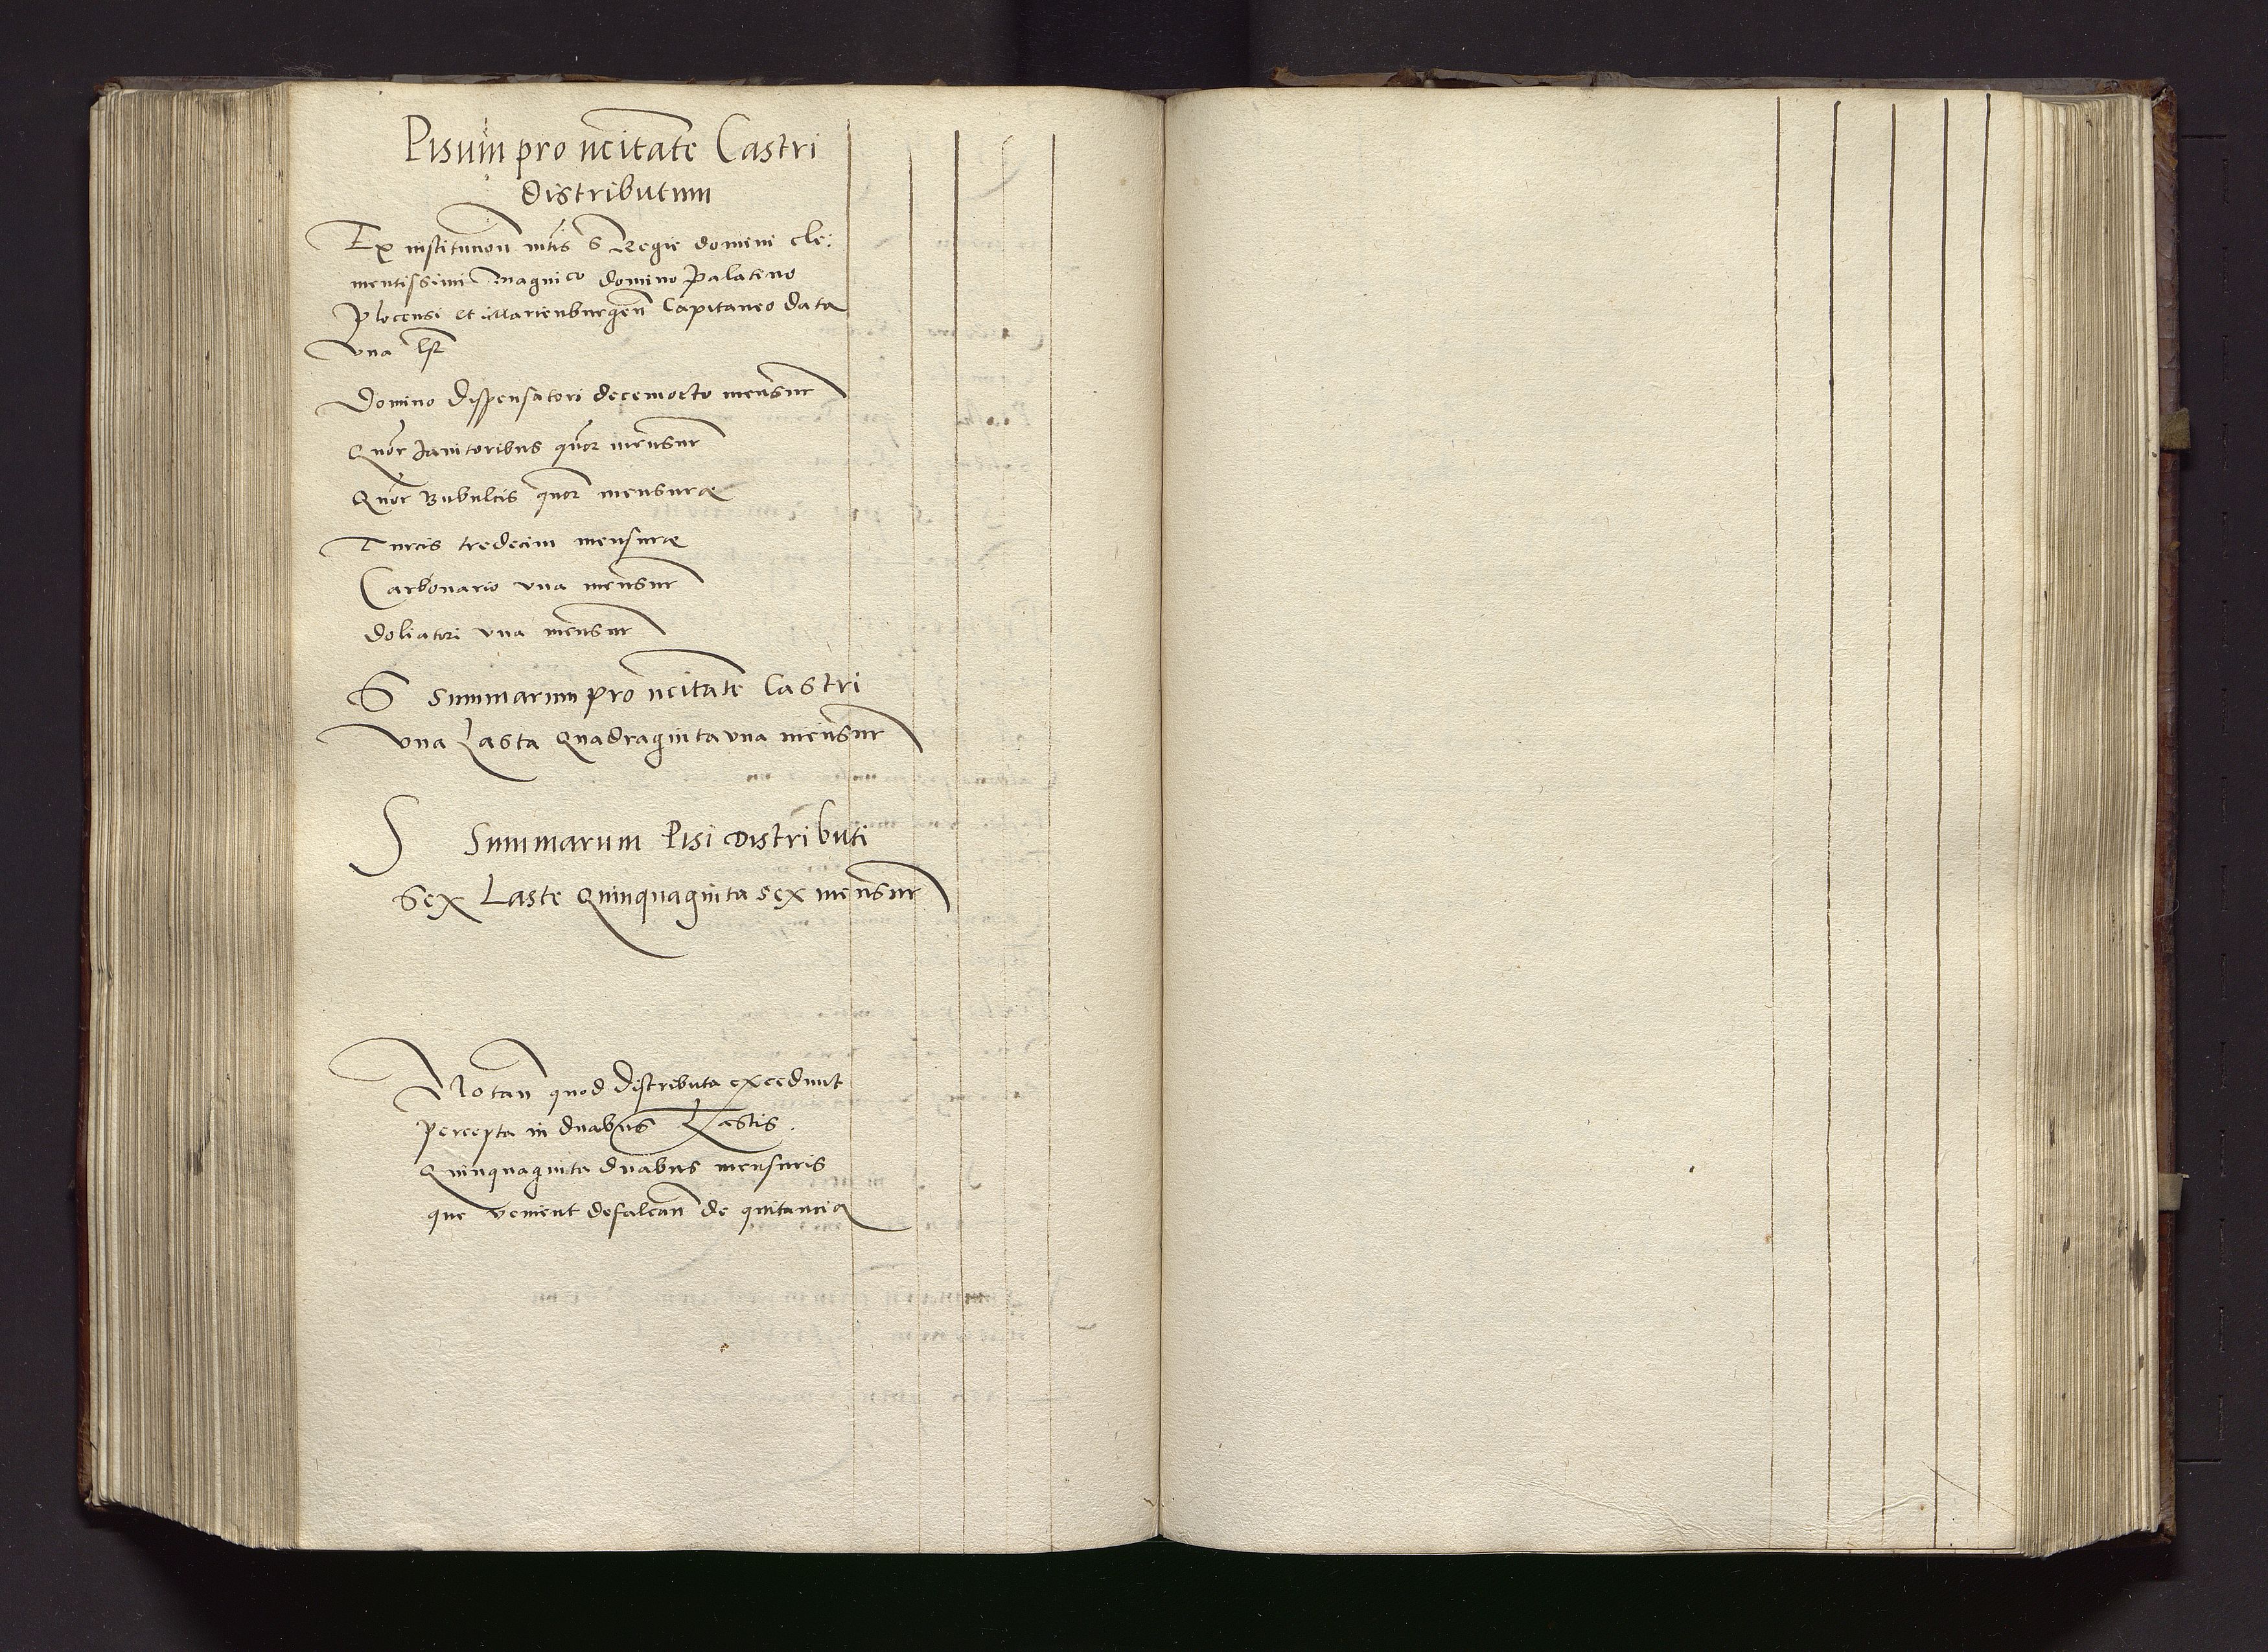 Pisum pro ncitate Castri
distributum
Ex institunon mtis S Regie domini cle:
mentissimi Magnico domino Palatino
Plocensi et Marienburgen Capitaneo data
vna lst
Domino dispensatori decemocto mensur
Quor Janitoribus quor mensur
Quor Bubulcis quor mensurae
Turcis tredecim mensurae
Carbonario vna mensur
doliatori vna mensur
S summarum pro ncitate Castri
vna Lasta Quadraginta vna mensur
S Summarum Pisi Distributi
Sex Laste Quinquaginta sex mensur
Notan quod distributa excedunt
percepta in duabus Lastis.
Quinquaginta duabus mensuris
que venient defalcan de quitancia